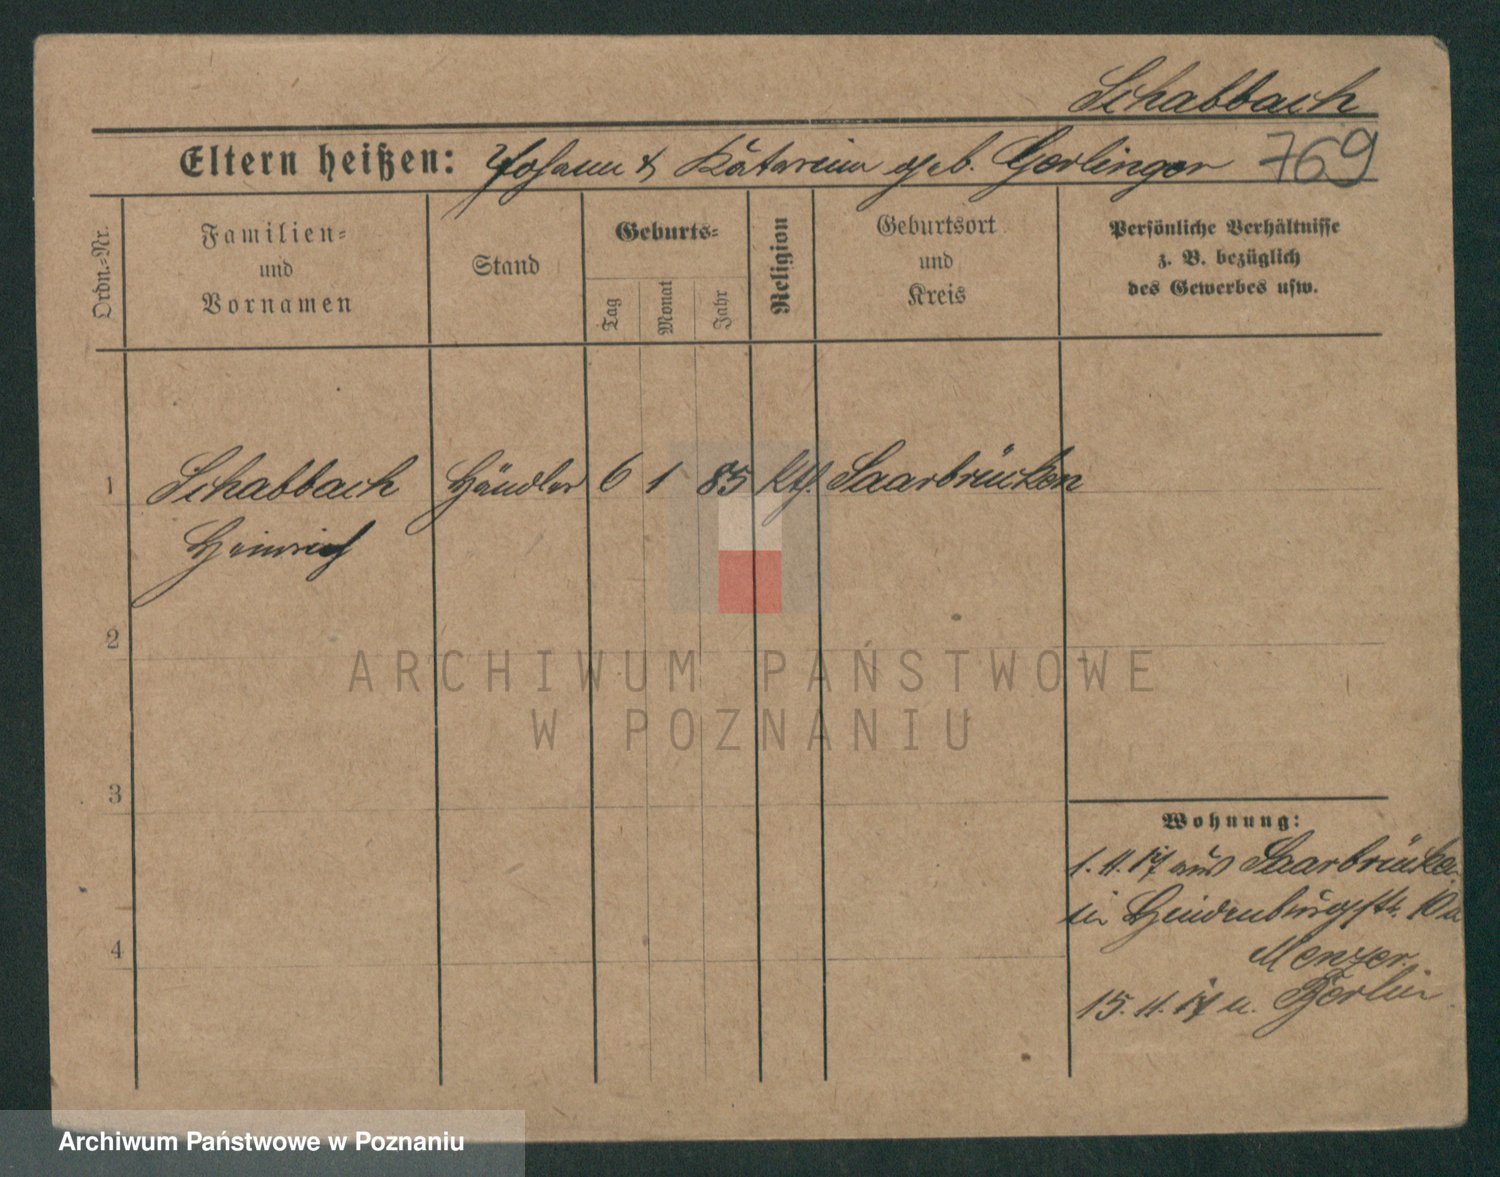 Schabbach
Eltern heißen: Johann & Kätarina geb. Gerlinger 769
Ordn.-Nr.
Familien-
und
Vornamen
Stand
Geburts-
Tag
Monat
Jahr
Religion
Geburtsort
und
Kreis
Persönliche Verhältnisse
z. B. bezüglich
des Gewerbes usw.
1 Schabbach Händler 6 1 85 kth. Saarbrücken
Heinrich
2
3
4
Wohnung:
1. 11. 17 aus Saarbrücken
in Hindenburgstr. 10a
Menzer.
15. 11. 17 n. Berlin
ARCHIWUM PAŃSTWOWE
W POZNANIU
Archiwum Państwowe w Poznaniu